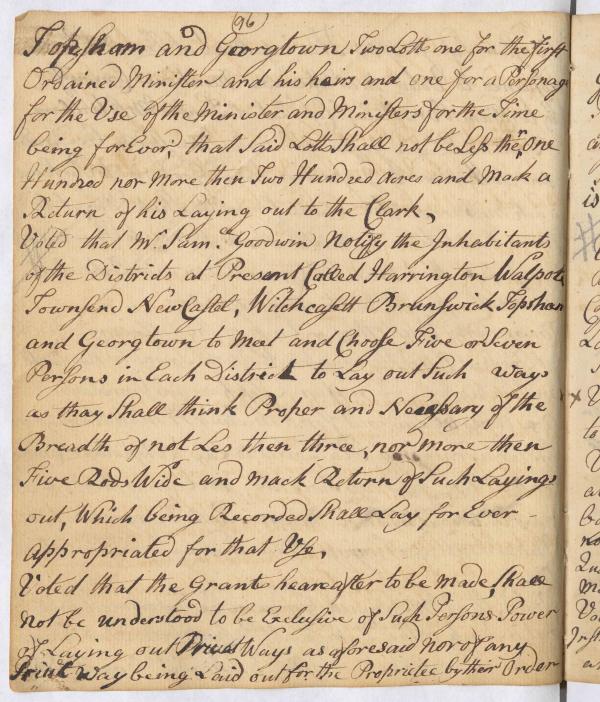 (96)
Topsham and Georgtown Two Lotts one for the First
Ordained Minister and his heirs and one for a Personage
for the Use of the Minister and Ministers for the Time
being for Ever, that Said Lotts Shall not be Less then One
Hundred nor More then Two Hundred Acres and Mack a
Return of his Laying out to the Clark,
Voted that Mr. Saml. Goodwin Notify the Inhabitants
of the Districts at Present Called Harrington Walpole
Townsend New Castel, Witchcasett Brunswick Topsham
and Georgetown to Meet and Choose Five or Seven
Persons in Each District to Lay out Such ways
as thay Shall think Proper and Necessary of the
Breadth of not Les then three, nor more then
Five Rods Wide and mack Return of Such Layings
out, Which being Recorded Shall Lay for Ever
appropriated for that Use,
Voted that the Grants heareafter to be made, Shall
not be understood to be Exclusive of Such Persons Power
of Laying out Privet Ways as aforesaid nor of any
Privit Way being Laid out for the Proprietee by their Order